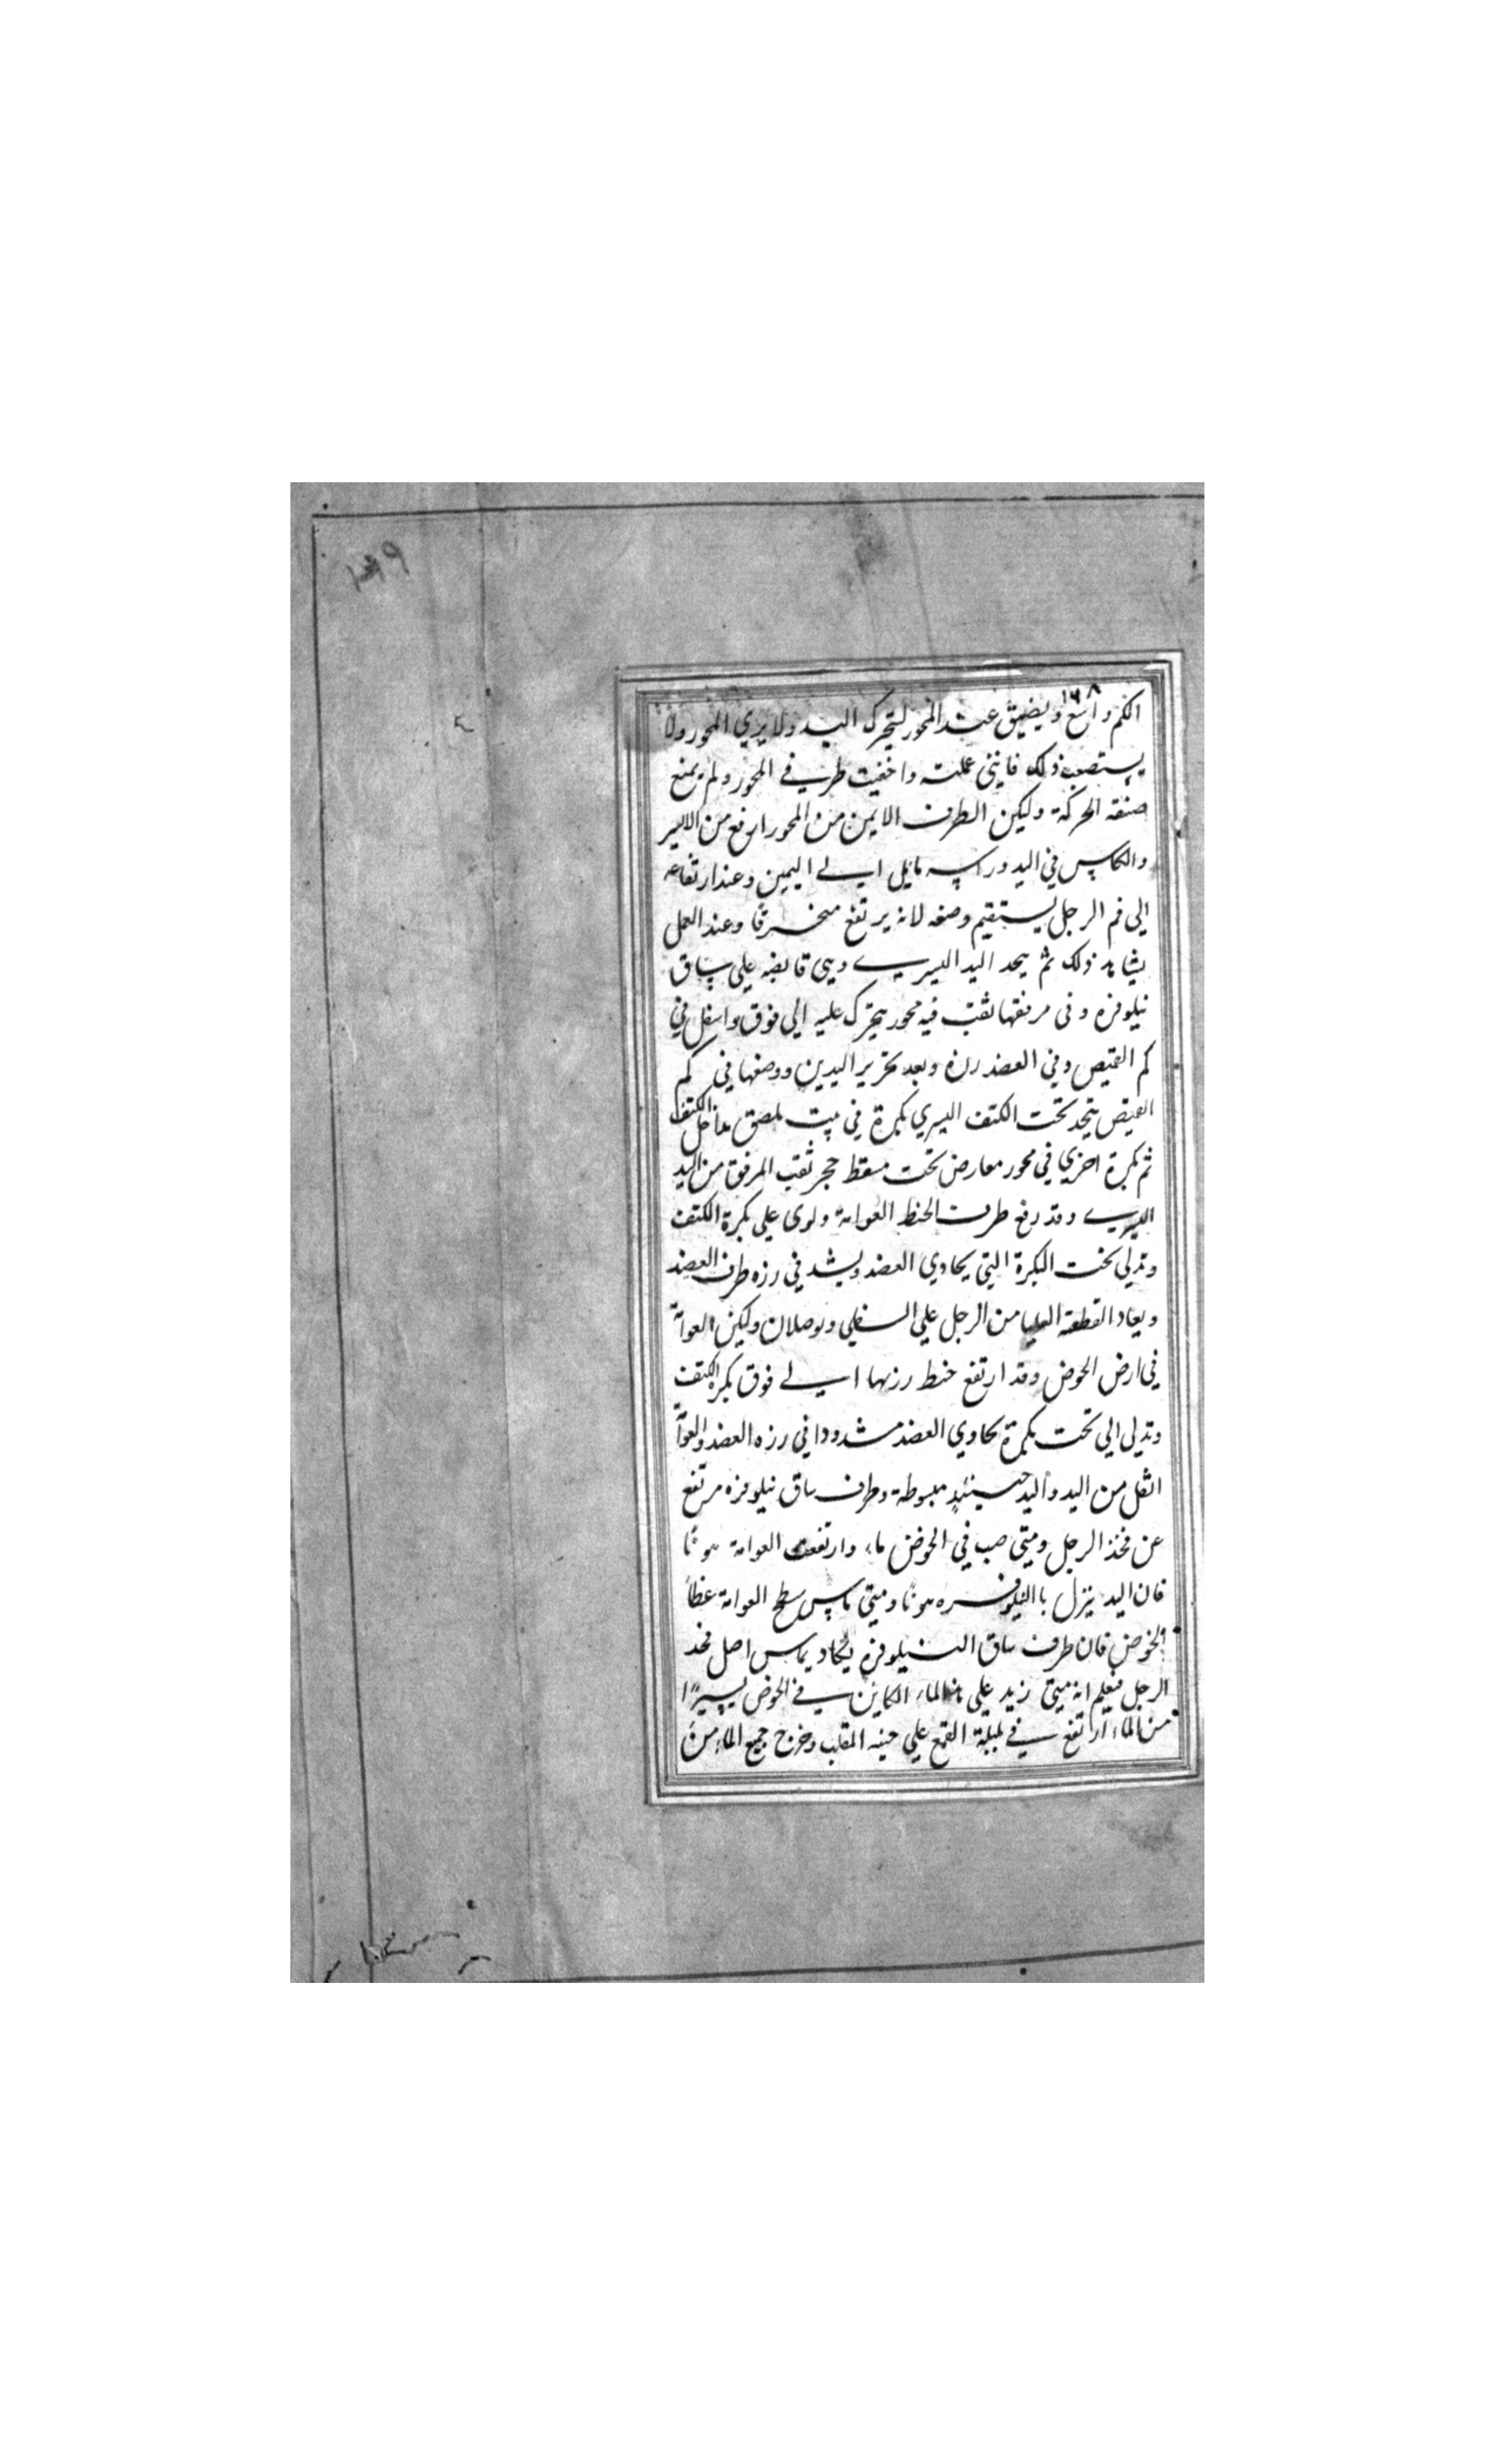 ١٣٩
١٦٨
الكم واسع ويضيق عند المحور لتحرك اليد ولا يري المحور ولا
يستصعب ذلك فاينى عملته واخفيت طرفي المحور ولم يمنع
صنقه الحركة وليكن الطرف الايمن من المحور ارفع من الايسر
والكاس في اليد وراسه مايل الى اليمين وعند ارتفاعه
الى فم الرجل يستقيم وضعه لانه يرتفع منخرقا وعند العمل
يشاهد ذلك ثم يتحد اليد اليسرى وهى قابضه على ساق
نيلوفره وفى مرفقها ثقب فيه محور يتحرك عليه الى فوق واسفل في
كم القميص وفي العضد رزه وبعد تحرير اليدين ووضعها في كم
القميص يتحد تحت الكتف اليسري بكرة في بيت يلصق بداخل الكتف
ثم بكرة اخري في محور معارض تحت مسقط حجر ثقب المرفق من اليد
اليسرى وقد رفع طرف الخيط العوامة ولوى على بكرة الكتف
وتدلى تحت البكرة التي يحادي العضد ويشد في رزه طرف العضد
ويعاد القطعة العليا من الرجل علي السفلي ويوصلان وليكن العوامة
في ارض الحوض وقد ارتفع خيط رزتها الى فوق بكرة الكتف
وتدلى الي تحت بكرة يحاوي العضد مشدودا في رزه العضد والعوامة
اثقل من اليد واليد حينئذ مبسوطة وطرف ساق نيلوفره مرتفع
عن فخذ الرجل ومتى صب في الحوض ماء وارتفعت العوامة هونا
فان اليد ينزل باالنيلوفره هونا ومتي ماس سطح العوامة غطا
الحوض فان طرف ساق النيلوفره يكاد يماس اصل فخد
الرجل فيعلم انه متى زيد علي هذا الماء الكاين في الحوض يسيرا
من الماء ارتفع في بلبلة القمع على حينه المقلب وخرج جميع الماء من